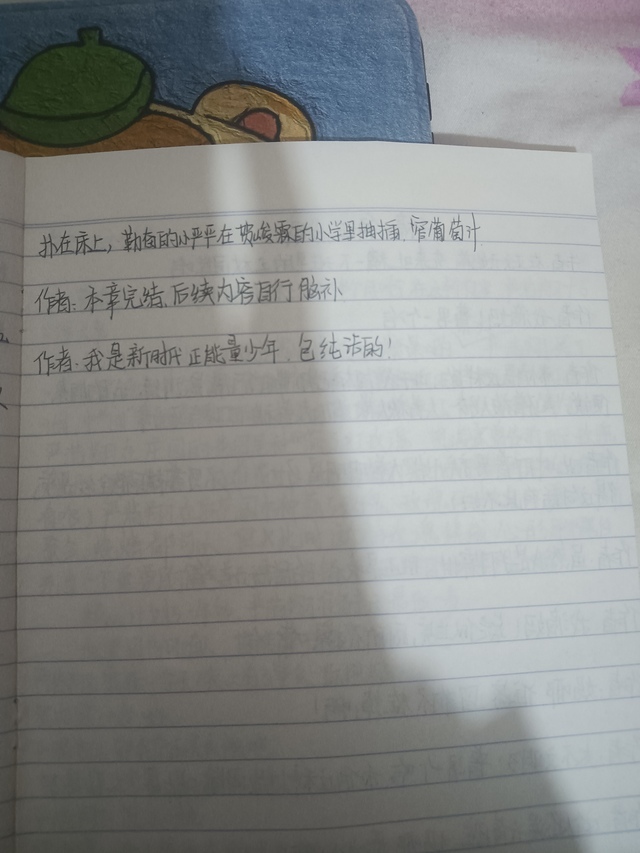 扑在床上，勤奋的小严严在贺峻霖的小学里抽插，窄葡萄汁
作者：本章完结，后续内容自行脑补
作者：我是新时代正能量少年，包纯洁的！